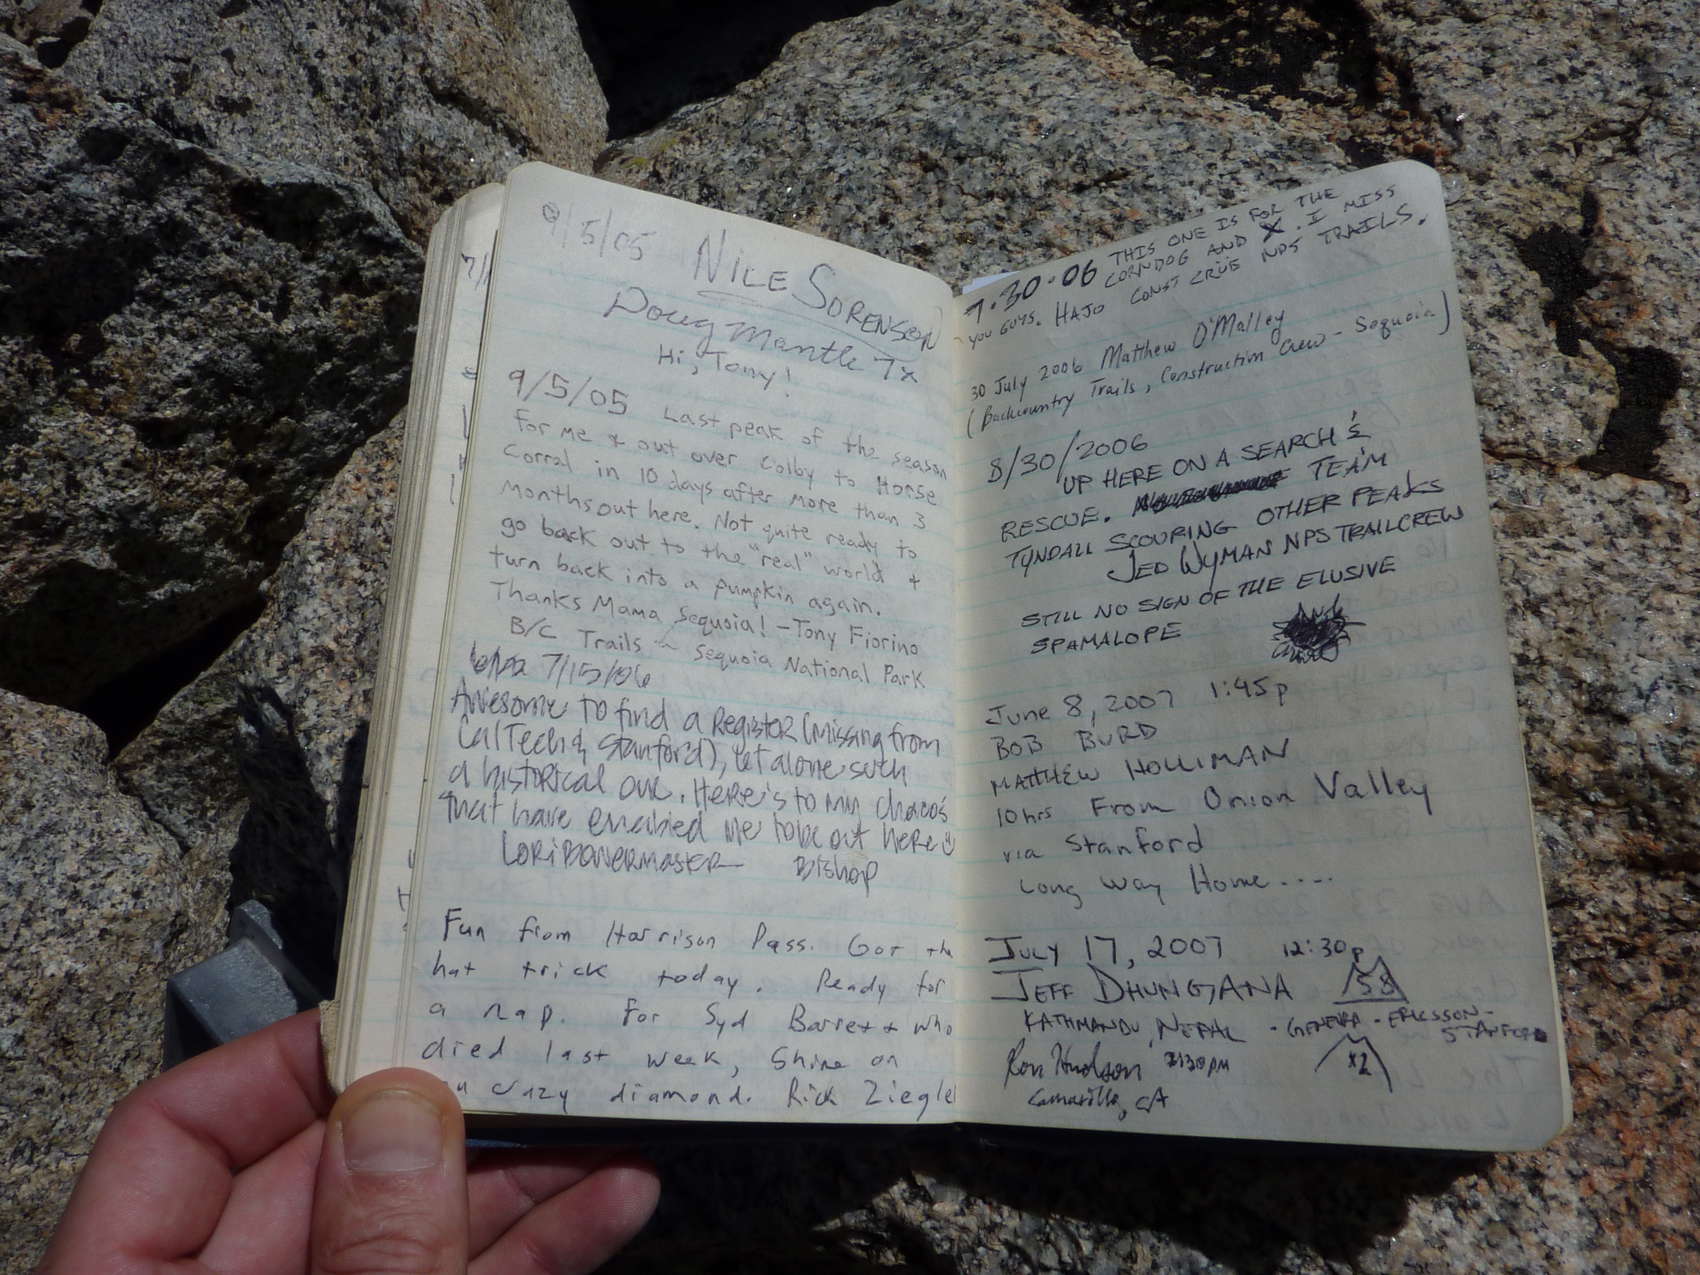 9/5/05 NILE SORENSON
Doug Mantle 7x
Hi, Tony!
9/5/05 Last peak of the season
for me & out over Colby to Horse
Corral in 10 days after more than 3
months out here. Not quite ready to
go back out to the "real" world &
turn back into a pumpkin again.
Thanks Mama Sequoia! - Tony Fiorino
B/C Trails ~ Sequoia National Park
7/15/06
Awesome to find a register (missing from
CalTech & Stanford), let alone such
a historical one. Here's to my chaco's
that have enabled me to be out here
LORI BOWERMASTER Bishop
Fun from Harrison Pass. Got the
hat trick today. Ready for
a nap. For Syd Barrett who
died last week, Shine on
crazy diamond. Rick Ziegle
7.30.06 THIS ONE IS FOR THE
CORNDOG AND X. I MISS
YOU GUYS. HAJO CONST CRÜE NPS TRAILS.
30 July 2006 Matthew O'Malley
(Backcountry Trails, Construction Crew - Sequoia)
8/30/2006
UP HERE ON A SEARCH &
RESCUE. TEAM
TYNDALL SCOURING OTHER PEAKS
JED WYMAN NPS TRAILCREW
STILL NO SIGN OF THE ELUSIVE
SPAMALOPE
June 8, 2007 1:45p
BOB BURD
MATTHEW HOLLIMAN
10 hrs From Onion Valley
via Stanford
Long Way Home....
JULY 17, 2007 12:30p
JEFF DHUNGANA 58
KATHMANDU, NEPAL - GENEVA - ERICSSON -
STANFORD
Ron Hudson 2:30pm x2
Camarillo, CA